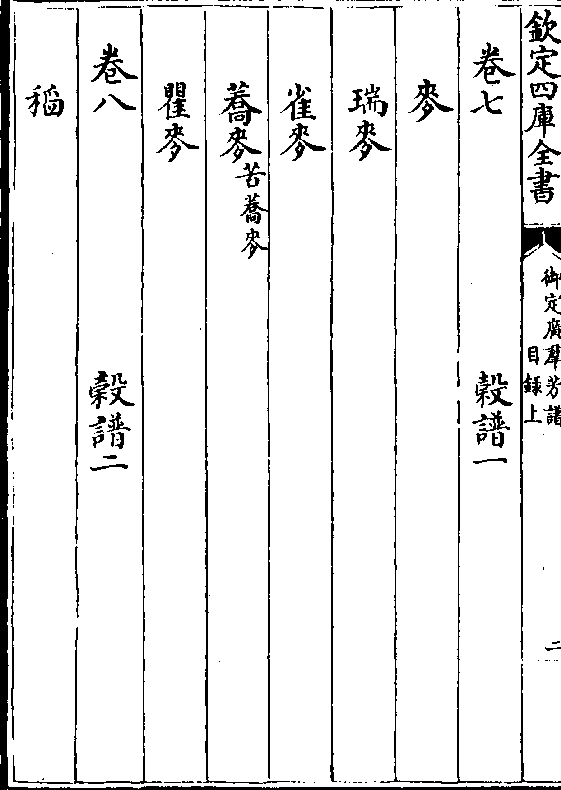 欽定四庫全書
御定廣羣芳譜
目錄上
二
卷七 穀譜一
麥
瑞麥
雀麥
蕎麥苦蕎麥
瞿麥
卷八 穀譜二
稻